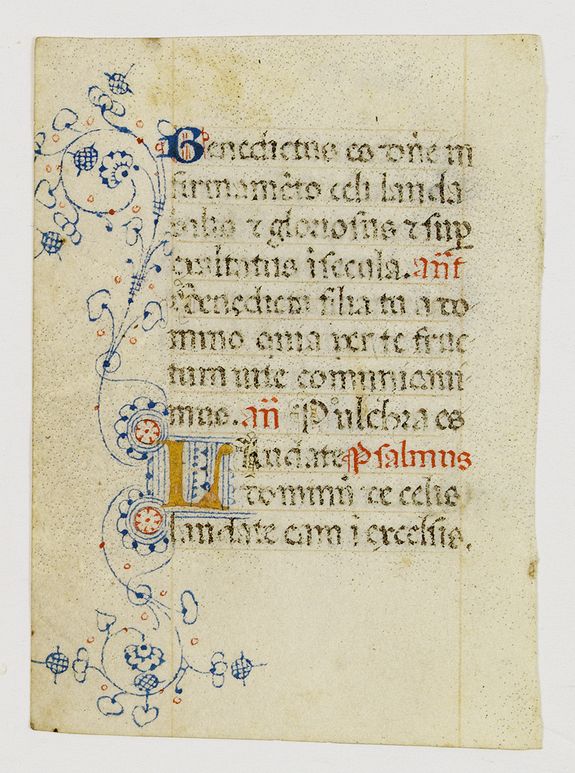 Benedictus es dñe in
firmamẽto celi lauda
bilis ⁊ gloriosus ⁊ suꝑ
exaltatus ĩ secula. añt
Benedicta filia tu a do
mino quia per te fruc
tum vite comunicaui
mus. añ Pulchra es
Laudate Psalmus
dominũ de celis
laudate eum ĩ excelsis.